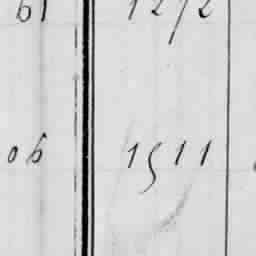 61 1272
06 1511